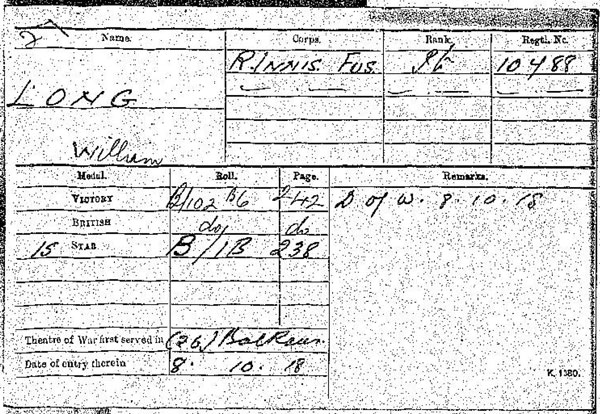 Name. Corps. Rank. Regtl. No.
R. INNIS. FUS. Pte 10488
LONG
William
Medal. Roll. Page. Remarks.
VICTORY B/102 B6 242 D of W. 8.10.18
BRITISH do do
15 STAR B/1B 238
Theatre of War first served in (2b) Balkans.
Date of entry therein 8. 10. 18
K. 1380.